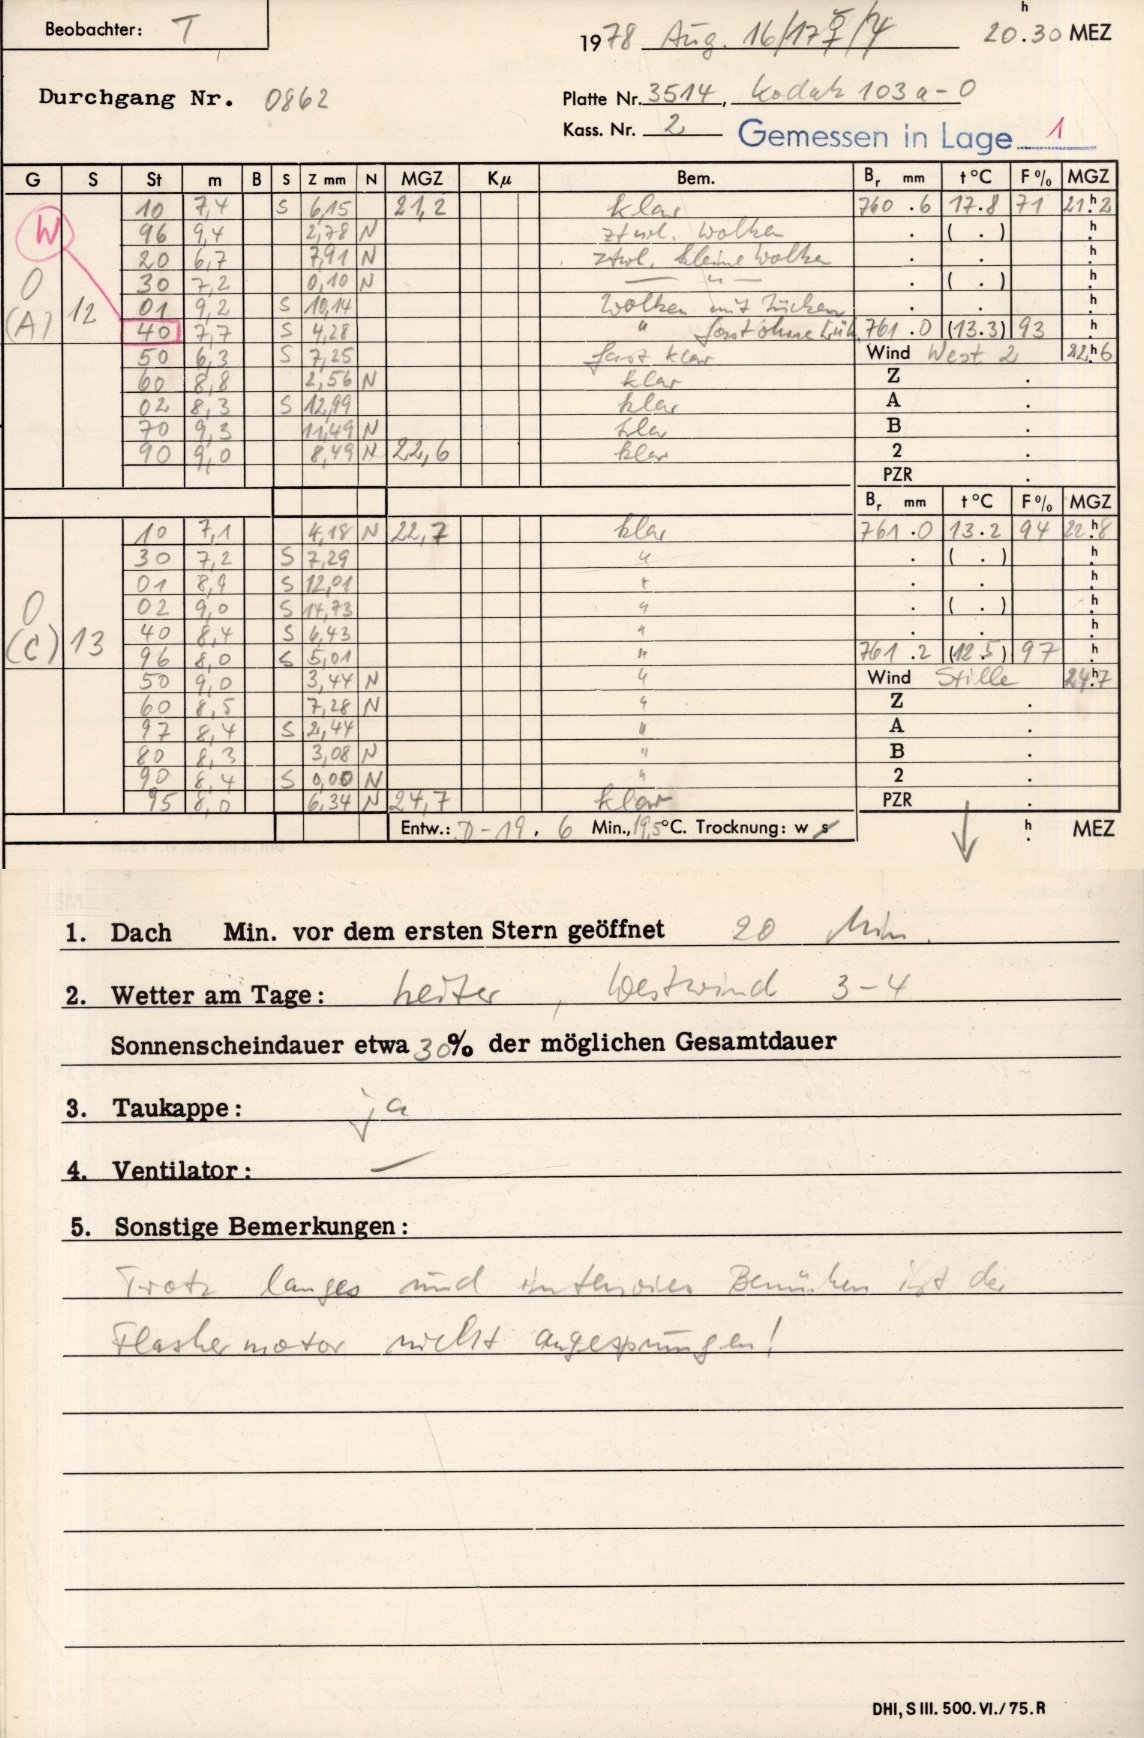 Beobachter: T
1978 Aug. 16/17 ☿/♃ 20.30 h MEZ
Durchgang Nr. 0862
Platte Nr. 3514, Kodak 103a-O
Kass. Nr. 2 Gemessen in Lage 1
G S St m B S Z mm N MGZ Kμ Bem. Br mm t °C F % MGZ
10 7,4 S 6,15 21,2 klar 760.6 17.8 71 21.h2
W 96 9,4 2,78 N ztwl. Wolken . ( . ) h
20 6,7 7,91 N ztwl. kleine Wolken . . h
O 30 7,2 0,10 N — " — . ( . ) h
(A) 12 01 9,2 S 10,14 Wolken mit Lücken . . h
40 7,7 S 4,28 " fast ohne Lück. 761.0 (13.3) 93 h
50 6,3 S 7,25 fast klar Wind West 2 22.h6
60 8,8 2,56 N klar Z .
02 8,3 S 12,99 klar A .
70 9,3 11,49 N klar B .
90 9,0 8,49 N 22,6 klar 2 .
PZR .
Br mm t °C F % MGZ
10 7,1 4,18 N 22,7 klar 761.0 13.2 94 22.h8
30 7,2 S 7,29 " . ( . ) h
01 8,9 S 12,01 " . . h
O 02 9,0 S 14,73 " . ( . ) h
(C) 13 40 8,4 S 6,43 " . . h
96 8,0 S 5,01 " 761.2 (12.5) 97 h
50 9,0 3,44 N " Wind Stille 24.h7
60 8,5 7,28 N " Z .
97 8,4 S 2,44 " A .
80 8,3 3,08 N " B .
90 8,4 S 0,00 N " 2 .
95 8,0 6,34 N 24,7 klar PZR .
Entw.: D-19, 6 Min., 19,5°C. Trocknung: w s h MEZ
1. Dach Min. vor dem ersten Stern geöffnet 20 Min.
2. Wetter am Tage: heiter, Westwind 3-4
Sonnenscheindauer etwa 30% der möglichen Gesamtdauer
3. Taukappe: ja
4. Ventilator: —
5. Sonstige Bemerkungen:
Trotz langes und intensives Bemühen ist der
Flashermotor nicht angesprungen!
DHI, S III. 500. VI./75. R